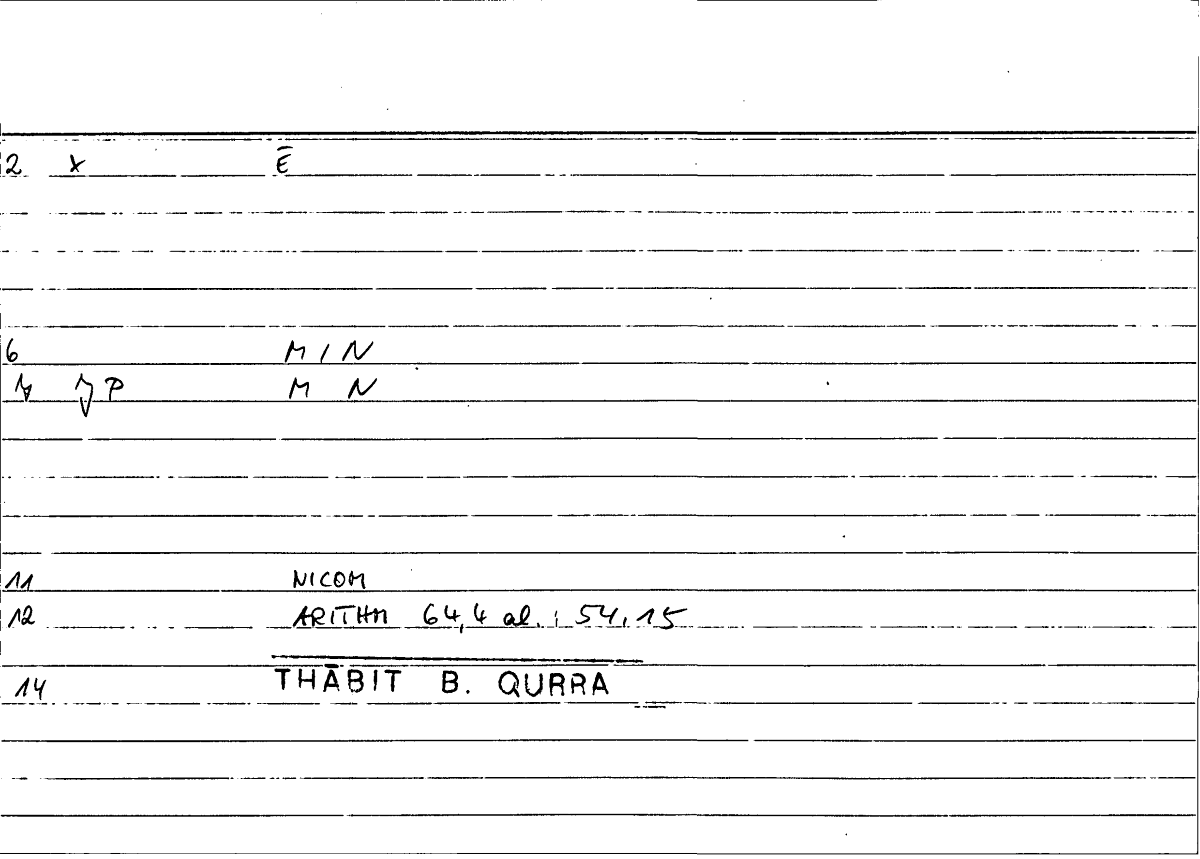 2 x Ē
6 M I N
P M N
11 NICOM
12 ARITHM 64,4 al. ; 54,15
14 THĀBIT B. QURRA